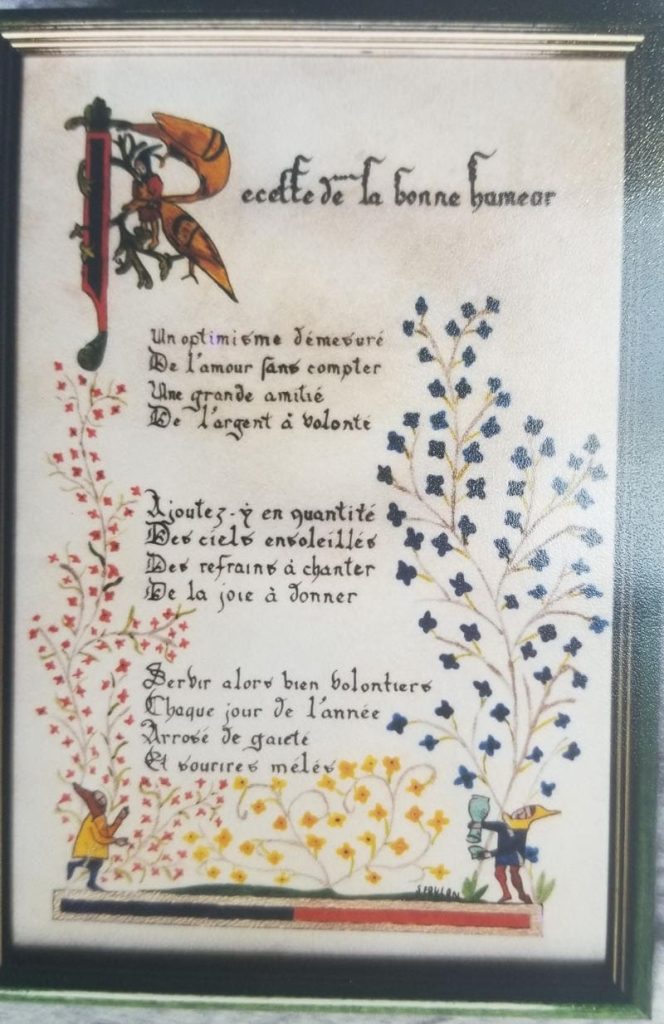 Recette de la bonne humeur
Un optimisme démesuré
De l'amour sans compter
Une grande amitié
De l'argent à volonté
Ajoutez-y en quantité
Des ciels ensoleillés
Des refrains à chanter
De la joie à donner
Servir alors bien volontiers
Chaque jour de l'année
Arrosé de gaieté
Et sourires mêlés
S. FOULON